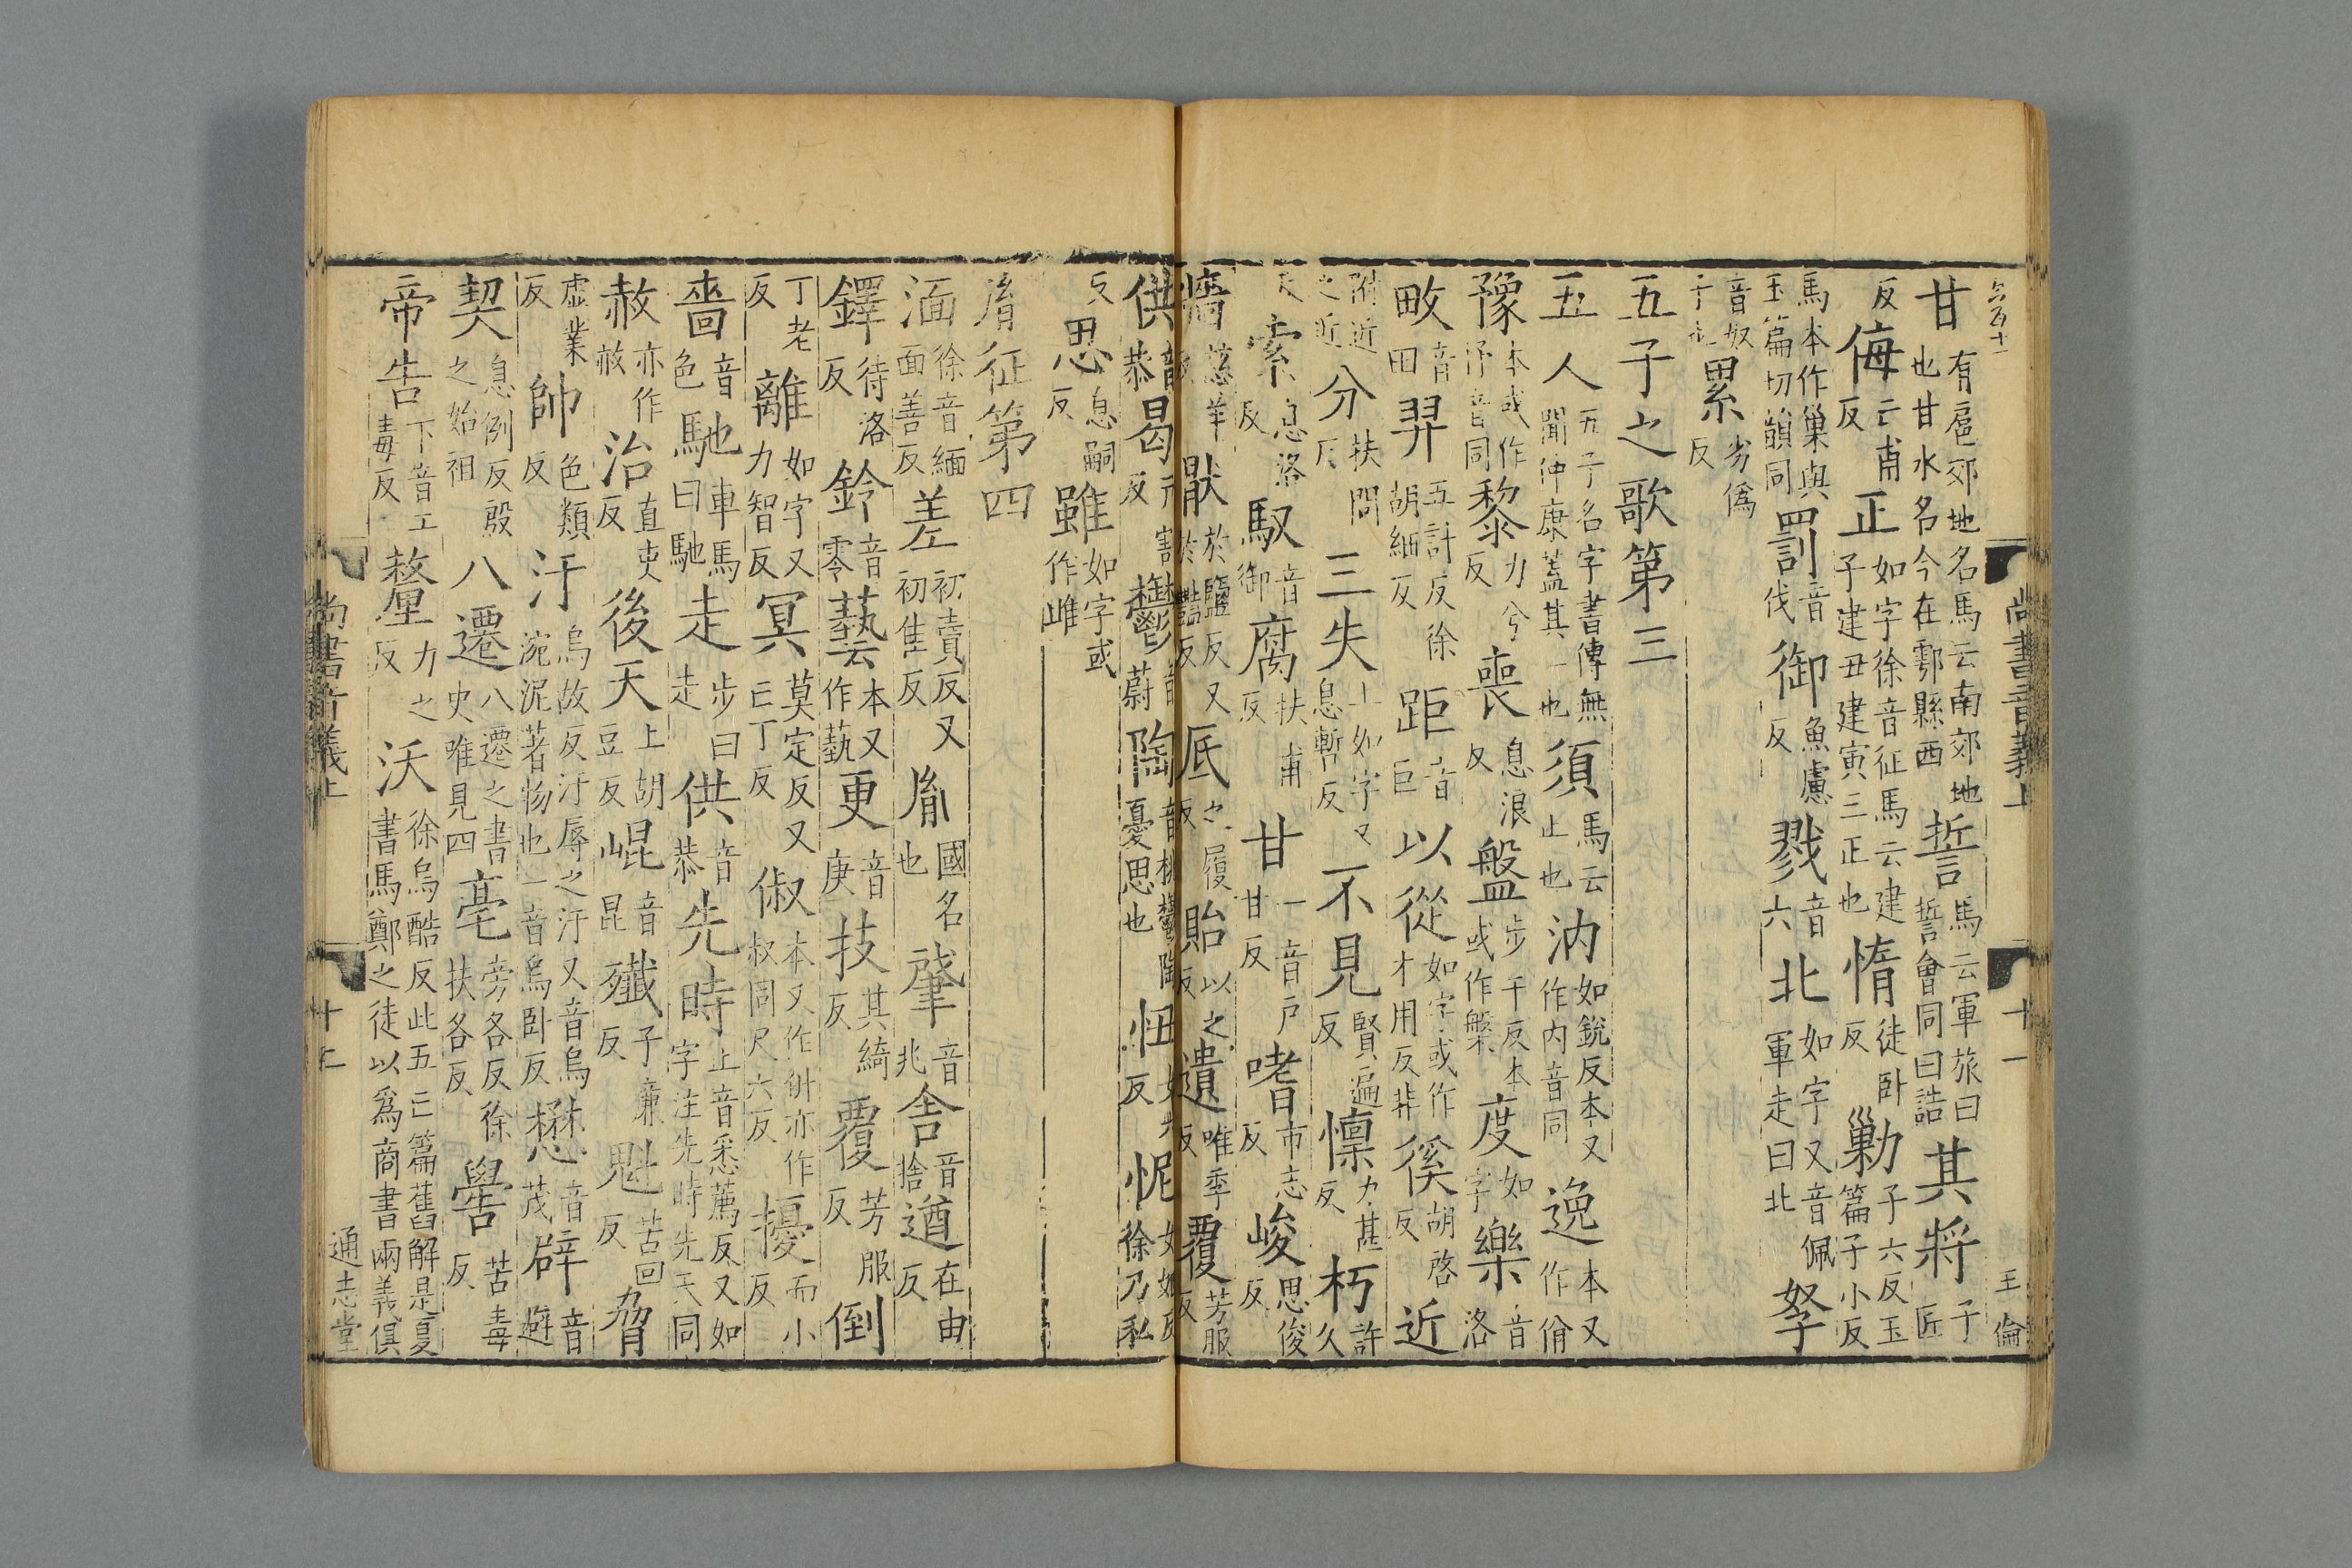 尚書音義上 十一 王倫
甘有扈郊地名馬云南郊地也甘水名今在鄠縣西誓馬云軍旅曰誓會同曰誥其將子匠
反侮亡甫反正如字徐音征馬云建子建丑建寅三正也惰徒卧反勦子六反玉篇子小反
馬本作巢與玉篇切韻同罰音伐御魚慮反戮音六北如字又音佩軍走曰北孥
音奴子也累劣偽反
五子之歌第三
五人五子名字書傳無聞仲康蓋其一也須馬云止也汭如銳反本又作内音同逸本又作佾
豫本或作忬音同黎力兮反喪息浪反盤步干反本或作槃度如字樂音洛
畋音田羿五計反徐胡細反距音巨以從如字或作才用反非徯胡啓反近
附近之近分扶問反三失上如字又息暫反不見賢遍反懍力甚反朽許久
反索息洛反馭音御腐扶甫反甘一音戶甘反嗜市志反峻思俊反
牆慈羊反猒於鹽反又於豔反厎之履反貽以之反遺唯季反覆芳服反
供音恭曷戶割反鬱音蔚陶音桃鬱陶憂思也忸女六反怩女姬反徐乃私
反思息嗣反雖如字或作雎
胤征第四
湎徐音緬面善反差初賣反又初隹反胤國名也肇音兆舍音捨遒在由反
鐸待洛反鈴音零藝本又作蓺更音庚技其綺反覆芳服反倒
丁老反離如字又力智反冥莫定反又亡丁反俶本又作㑐亦作叔同尺六反擾而小反
嗇音色馳車馬曰馳走步曰走供音恭先時上音悉薦反又如字注先時先天同
赦亦作𢼜治直吏反後天上胡豆反崐音昆殲子廉反魁苦回反脅
虛業反帥色類反汙烏故反汙辱之汙又音烏涴泥著物也一音烏卧反懋音茂辟音避
契息例反殷之始祖八遷八遷之書史唯見四亳旁各反徐扶各反嚳苦毒反
帝告下音工毒反釐力之反沃徐烏酷反此五亡篇舊解是夏書馬鄭之徒以爲商書兩義俱
尚書音義上 十二 通志堂